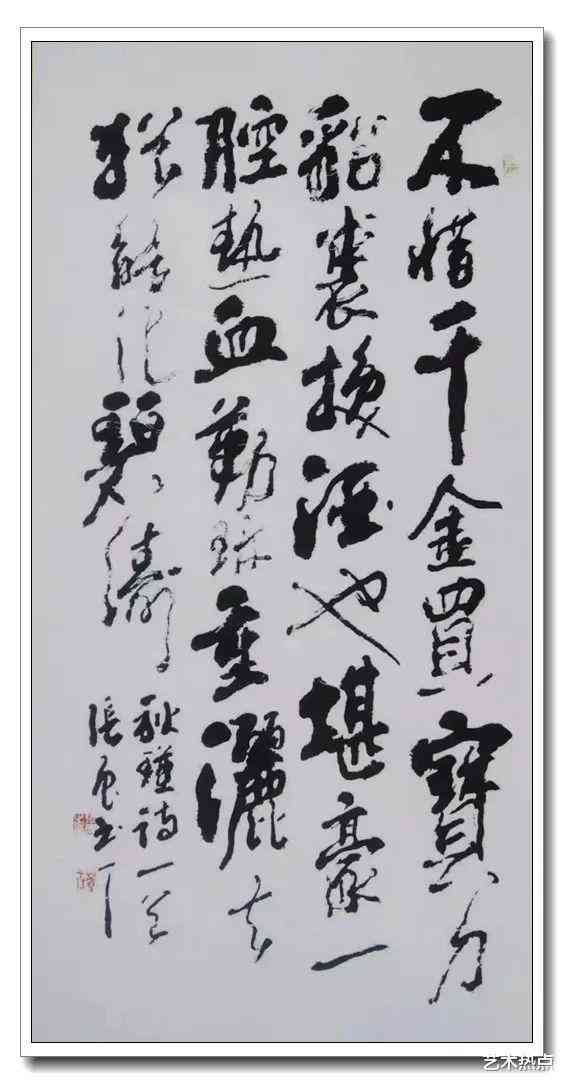 不惜千金買寶刀
貂裘換酒也堪豪一
腔熱血勤珎重灑去
猶能化碧濤
秋瑾詩一首
張 書
艺术热点